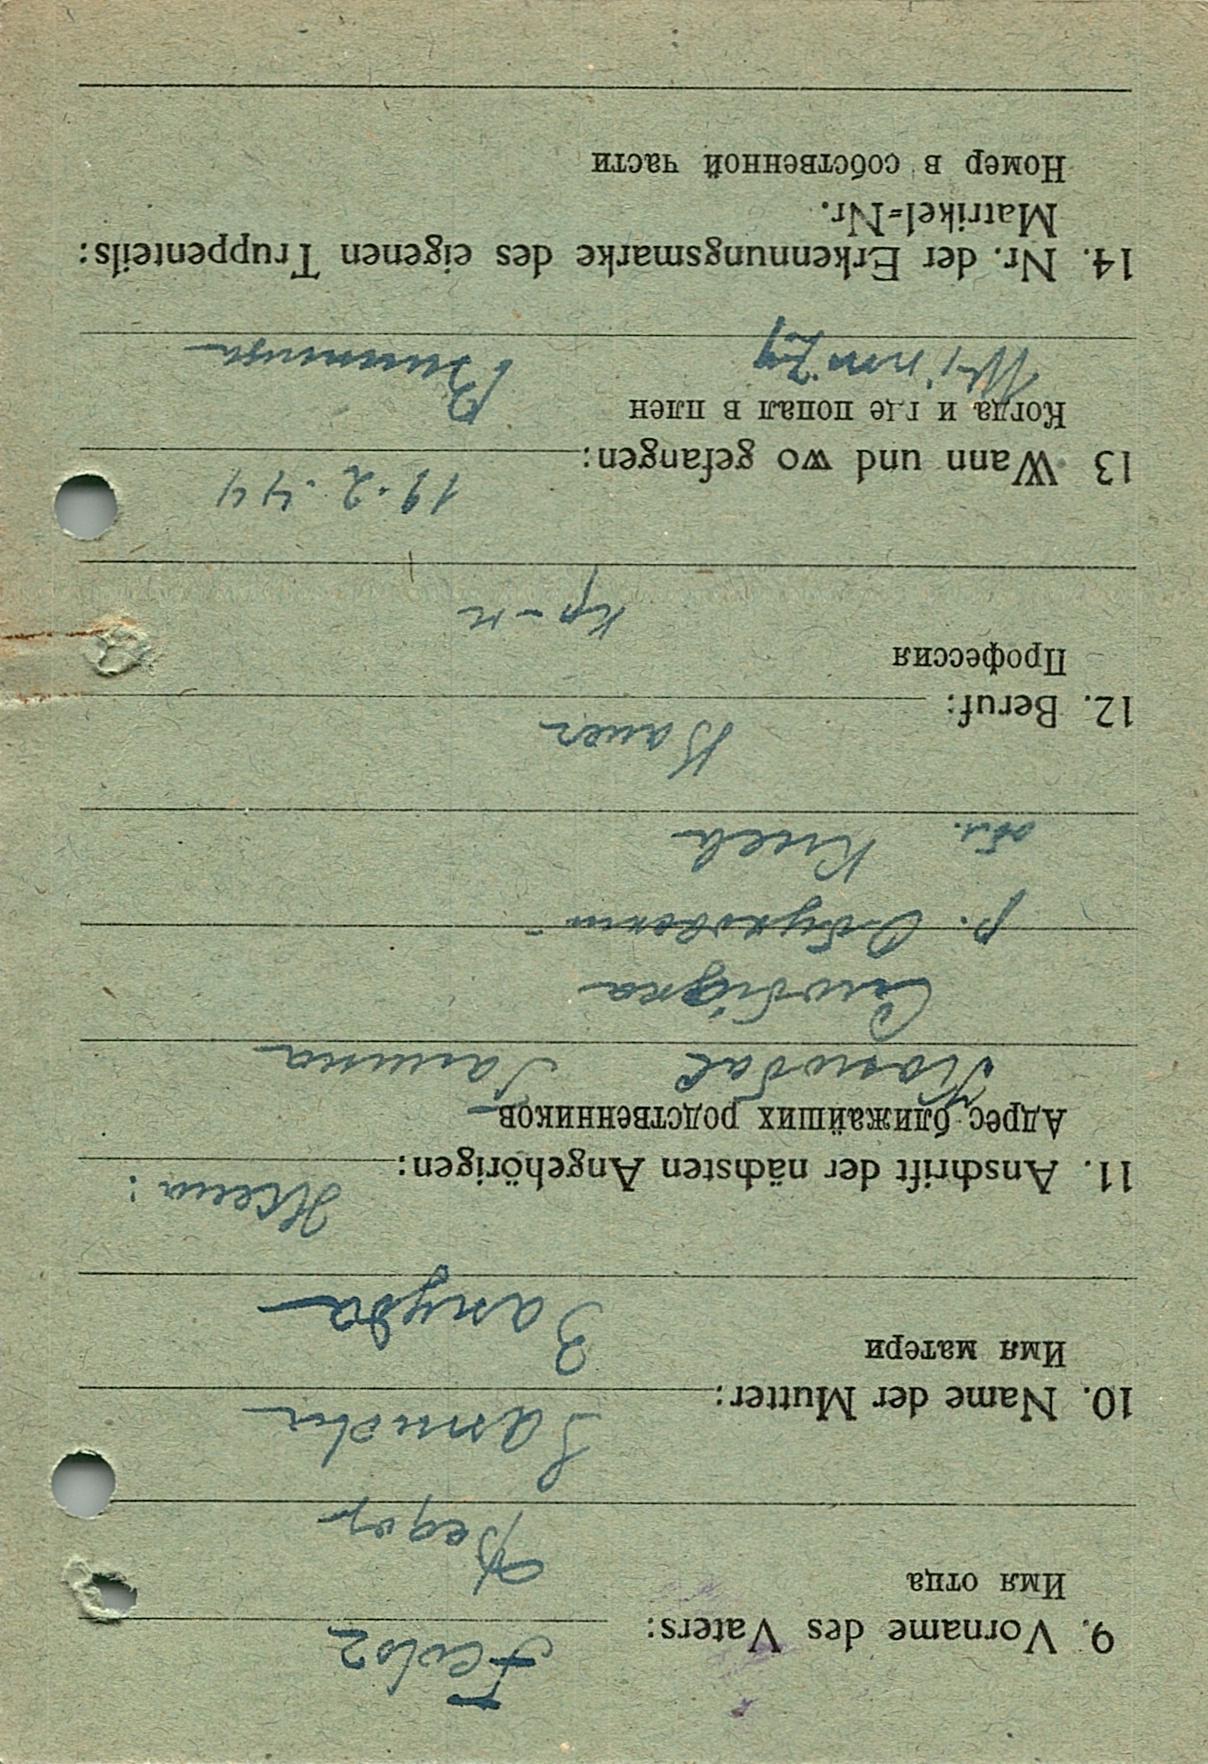 9. Vorname des Vaters: Fedor
Имя отца Федор
10. Name der Mutter:
Имя матери
11. Anschrift der nächsten Angehörigen: Жена:
Адрес ближайших родственников
Галина
Слобідка
р. Обуховский
обл. Киев
12. Beruf: Bauer
Профессия
кр-н
13 Wann und wo gefangen: 19.2.44
Когда и где попал в плен
Винница
14. Nr. der Erkennungsmarke des eigenen Truppenteils:
Matrikel-Nr.
Номер в собственной части